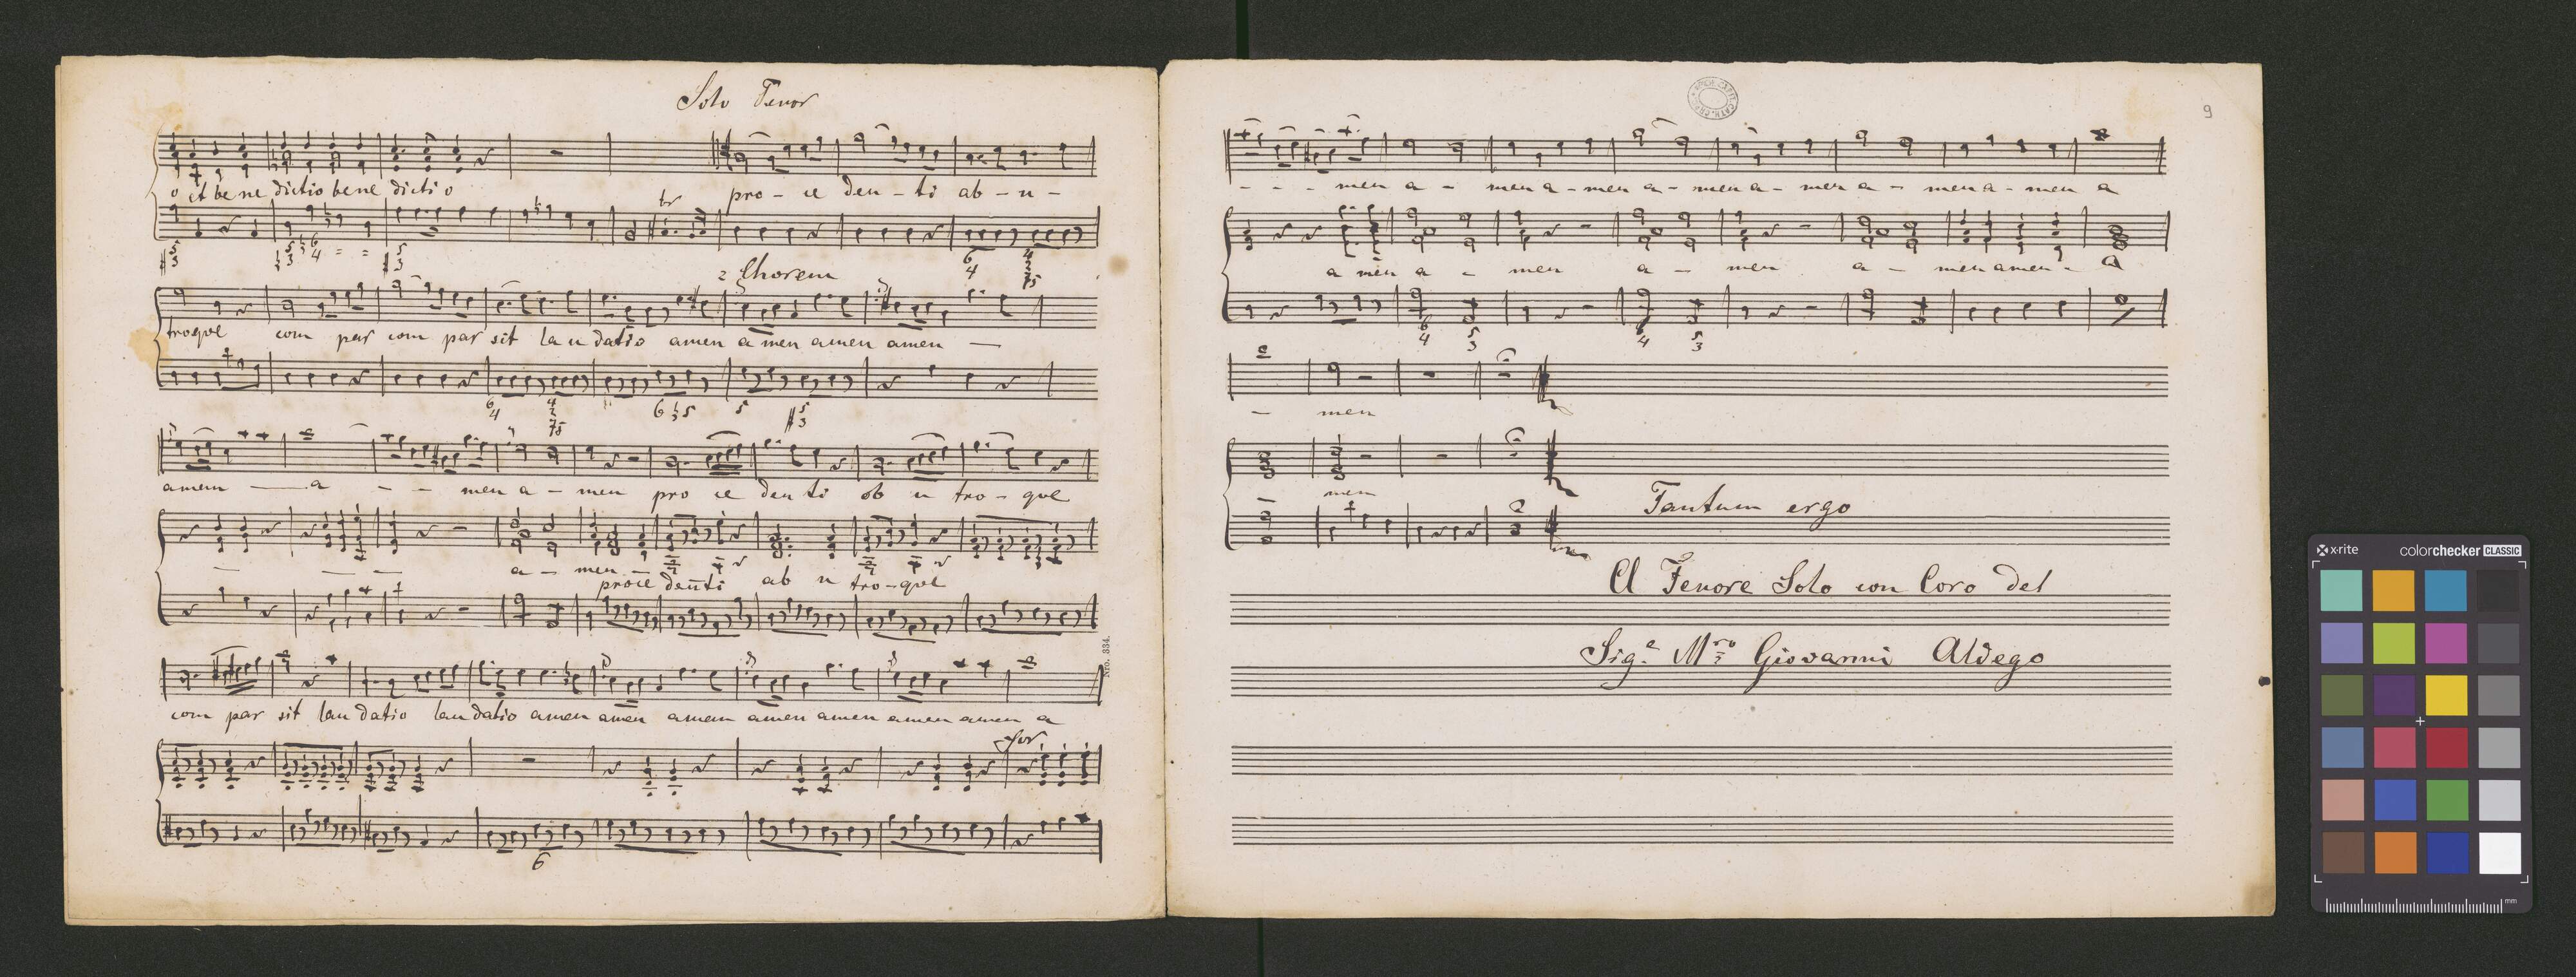 Solo Tenor
o et be ne dictio bene dictio pro - ce den - ti ab - u -
tr
5 3
5 3 6 4 = =
5 3
6 4
troqve com par com par sit lau datio amen amen amen amen —
6 4
6 5
5
5 3
amen — a - - men a - men pro ce den ti ab u tro - qve
a - men —
proce denti ab u tro - qve
com par sit lau datio lau datio amen amen amen amen amen amen amen a
for
6
Nro. 334.
9
- - - men a - men a - men a - men a - men a - men a - men a
a men a - men a - men a - men amen - a
6 4 5 3 6 4 5 3
- men
men
Tantum ergo
a Tenore Solo con Coro del
Sig.e Mro Giovanni Aldego
x-rite colorchecker CLASSIC
mm